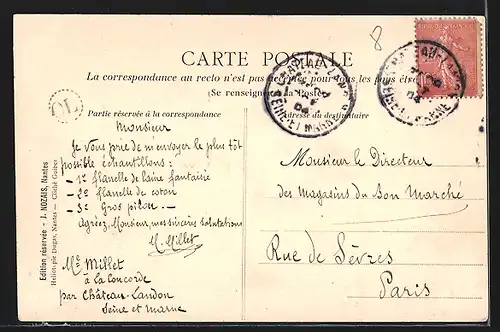 8
CARTE POSTALE
La correspondance au recto n'est pas acceptée pour tous les pays étrangers
(Se renseigner à la Poste)
OL
Partie réservée à la correspondance
Adresse du destinataire
Monsieur
Je vous prie de m'envoyer le plus tôt
possible échantillons :
- 1º flanelle de laine fantaisie
- 2º flanelle de coton
- 3º Gros pilou -
Agréez, Monsieur, mes sincères salutations
M. Millet
Mme Millet
à La Concorde
par Château-Landon
Seine et Marne
Monsieur le Directeur
des Magasins du Bon Marché
Rue de Sèvres
Paris
Edition réservée - J. NOZAIS, Nantes
Héliotypie Dugas, Nantes
SEINE-ET-MARNE